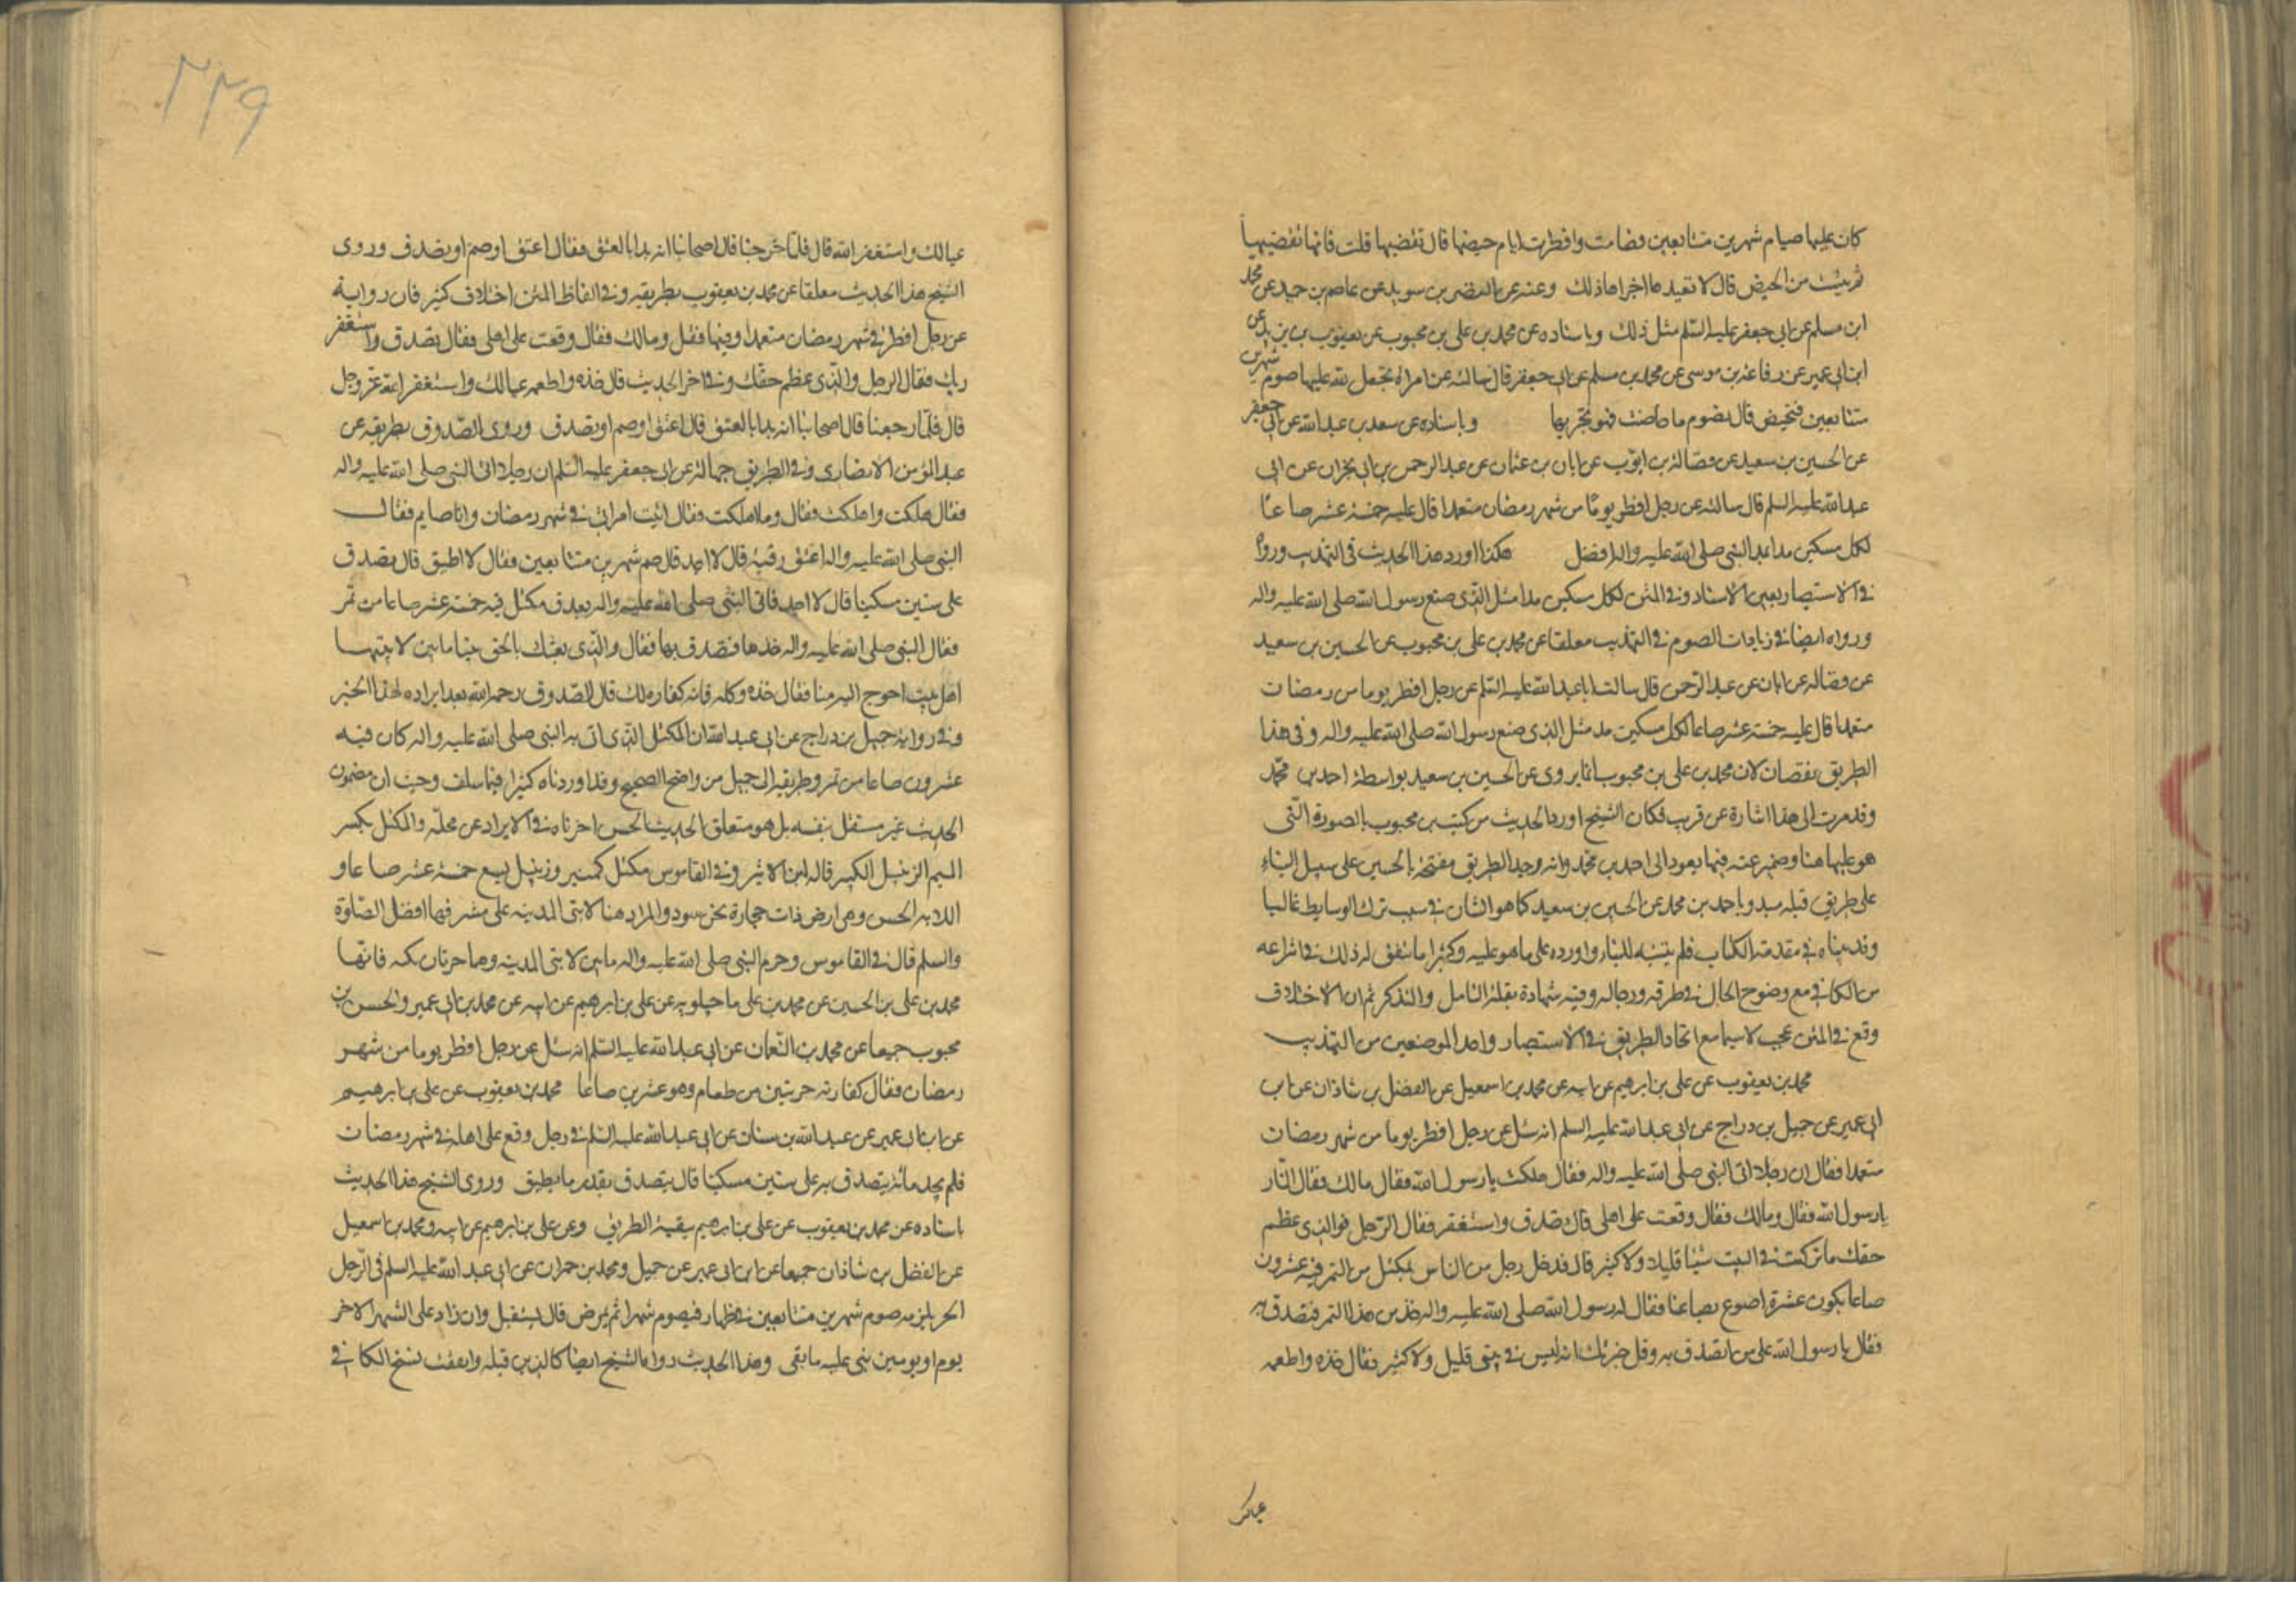 كان عليها صيام شهرين متتابعين فصامت وافطرت ايام حيضها قال تقضيها قلت فانها تقضيها
ثم يئست من الحيض قال لا تعيدها اجزاها ذلك وعنه عن النضر بن سويد عن عاصم بن حميد عن محمد
ابن مسلم عن ابي جعفر عليه السلم مثل ذلك وباسناده عن محمد بن علي بن محبوب عن يعقوب بن يزيد عن
ابن ابي عمير عن رفاعة بن موسى عن محمد بن مسلم عن ابي جعفر قال سالته عن امراة تجعل لله عليها صوم شهرين
متتابعين فتحيض قال تصوم ما حاضت فهو يجزيها وباسناده عن سعد بن عبد الله عن ابي جعفر
عن الحسين بن سعيد عن فضالة بن ايوب عن ابان بن عثمان عن عبد الرحمن بن ابي نجران عن ابي
عبد الله عليه السلم قال سالته عن رجل افطر يوما من شهر رمضان متعمدا قال عليه خمسة عشر صاعا
لكل مسكين مد بمد النبي صلى الله عليه واله افضل هكذا اورد هذا الحديث في التهذيب ورواه
في الاستبصار بعين الاسناد وفي المتن لكل مسكين مد مثل الذي صنع رسول الله صلى الله عليه واله
ورواه ايضا في زيادات الصوم في التهذيب معلقا عن محمد بن علي بن محبوب عن الحسين بن سعيد
عن فضالة عن ابان عن عبد الرحمن قال سالت ابا عبد الله عليه السلم عن رجل افطر يوما من رمضان
متعمدا قال عليه خمسة عشر صاعا لكل مسكين مد مثل الذي صنع رسول الله صلى الله عليه واله وفي هذا
الطريق نقصان لان محمد بن علي بن محبوب انما يروى عن الحسين بن سعيد بواسطة احمد بن محمد
وقد مرت الى هذا اشارة عن قريب فكان الشيخ اورد الحديث من كتب بن محبوب بالصورة التي
هو عليها هنا وضمير عنه فيها يعود الى احمد بن محمد وانه وجد الطريق مفتتحة بالحسين على سبيل البناء
على طريق قبله مبدو باحمد بن محمد عن الحسين بن سعيد كما هو الشان في سبب ترك الوسايط غالبا
وقد بيناه في مقدمة الكتاب فلم يتنبه للبناء واورده على ما هو عليه وكثيرا ما يتفق له ذلك في انتزاعه
من الكافي مع وضوح الحال في طرقه ورجاله وفيه شهادة بقلة التامل والتذكر ثم ان الاختلاف
وقع في المتن عجب لا سيما مع اتحاد الطريق في الاستبصار واحد الموضعين من التهذيب
محمد بن يعقوب عن علي بن ابرهيم عن ابيه عن محمد بن اسمعيل عن الفضل بن شاذان عن ابن
ابي عمير عن جميل بن دراج عن ابي عبد الله عليه السلم انه سئل عن رجل افطر يوما من شهر رمضان
متعمدا فقال ان رجلا اتى النبي صلى الله عليه واله فقال هلكت يا رسول الله فقال مالك فقال النار
يا رسول الله فقال ومالك فقال وقعت على اهلي قال تصدق واستغفر فقال الرجل فوالذي عظم
حقك ما تركت في البيت شيئا قليلا ولا كثير قال فدخل رجل من الناس بمكتل من التمر فيه عشرون
صاعا يكون عشرة اصوع بصاعنا فقال له رسول الله صلى الله عليه واله خذ من هذا التمر فتصدق به
فقال يا رسول الله على من اتصدق به وقد خبرتك انه ليس في بيتي قليل ولا كثير فقال خذه واطعمه
عيالك
٢٢٩
عيالك واستغفر الله قال فلما خرجنا قال اصحابنا انه بدا بالعتق فقال اعتق او صم او تصدق وروى
الشيخ هذا الحديث معلقا عن محمد بن يعقوب بطريقيه وفي الفاظ المتن اختلاف كثير فان رواية
عن رجل افطر في شهر رمضان متعمدا وفيها فقال ومالك فقال وقعت على اهلي فقال تصدق واستغفر
ربك فقال الرجل والذي عظم حقك وفي اخر الحديث قال خذه واطعمه عيالك واستغفر الله عز وجل
قال فلما رجعنا قال اصحابنا انه بدا بالعتق قال اعتق او صم او تصدق وروى الصدوق بطريقه عن
عبد المؤمن الانصاري وفي الطريق جهالة عن ابي جعفر عليه السلم ان رجلا اتى النبي صلى الله عليه واله
فقال هلكت واهلكت فقال وما اهلكت فقال اتيت امراتي في شهر رمضان وانا صايم فقال
النبي صلى الله عليه واله اعتق رقبة قال لا اجد قال صم شهرين متتابعين فقال لا اطيق قال تصدق
على ستين مسكينا قال لا اجد فاتى النبي صلى الله عليه واله بعذق مكتل فيه خمسة عشر صاعا من تمر
فقال النبي صلى الله عليه واله خذها فتصدق بها فقال والذي بعثك بالحق نبيا ما بين لابتيها
اهل بيت احوج اليه منا فقال خذه وكله فانه كفارة لك قال الصدوق رحمه الله بعد ايراده لهذا الخبر
وفي رواية جميل بن دراج عن ابي عبد الله ان المكتل الذي اتى به النبي صلى الله عليه واله كان فيه
عشرون صاعا من تمر وطريقه الى جميل من واضح الصحيح وقد اوردناه كثيرا فيما سلف وحيث ان مضمون
الحديث غير مستقل بنفسه بل هو متعلق الحديث الحسن اخرناه في الايراد عن محله والمكتل بكسر
الميم الزنبيل الكبير قاله ابن الاثير وفي القاموس مكتل كمنبر وزنبيل يسع خمسة عشر صاعا و
اللابة الحس وهي ارض ذات حجارة نخر سود والمراد هنا لابتي المدينة على مشرفها افضل الصلوة
والسلم قال في القاموس وحرم النبي صلى الله عليه واله ما بين لابتي المدينة وهما حرتان تكنفانها
محمد بن علي بن الحسين عن محمد بن علي ماجيلويه عن علي بن ابرهيم عن ابيه عن محمد بن ابي عمير والحسن بن
محبوب جميعا عن محمد بن النعمان عن ابي عبد الله عليه السلم انه سئل عن رجل افطر يوما من شهر
رمضان فقال كفارته جريبين من طعام وهو عشرين صاعا محمد بن يعقوب عن علي بن ابرهيم
عن ابن ابي عمير عن عبد الله بن سنان عن ابي عبد الله عليه السلم في رجل وقع على اهله في شهر رمضان
فلم يجد ما يتصدق به على ستين مسكينا قال يتصدق بقدر ما يطيق وروى الشيخ هذا الحديث
باسناده عن محمد بن يعقوب عن علي بن ابرهيم ببقية الطريق وعن علي بن ابرهيم عن ابيه ومحمد بن اسمعيل
عن الفضل بن شاذان جميعا عن ابن ابي عمير عن جميل ومحمد بن حمران عن ابي عبد الله عليه السلم في الرجل
الحر يلزمه صوم شهرين متتابعين في ظهار فيصوم شهرا ثم يمرض قال يستقبل وان زاد على الشهر الاخر
يوم او يومين بنى عليه ما بقي وهذا الحديث رواه الشيخ ايضا كالذين قبله واتفقت نسخ الكافي